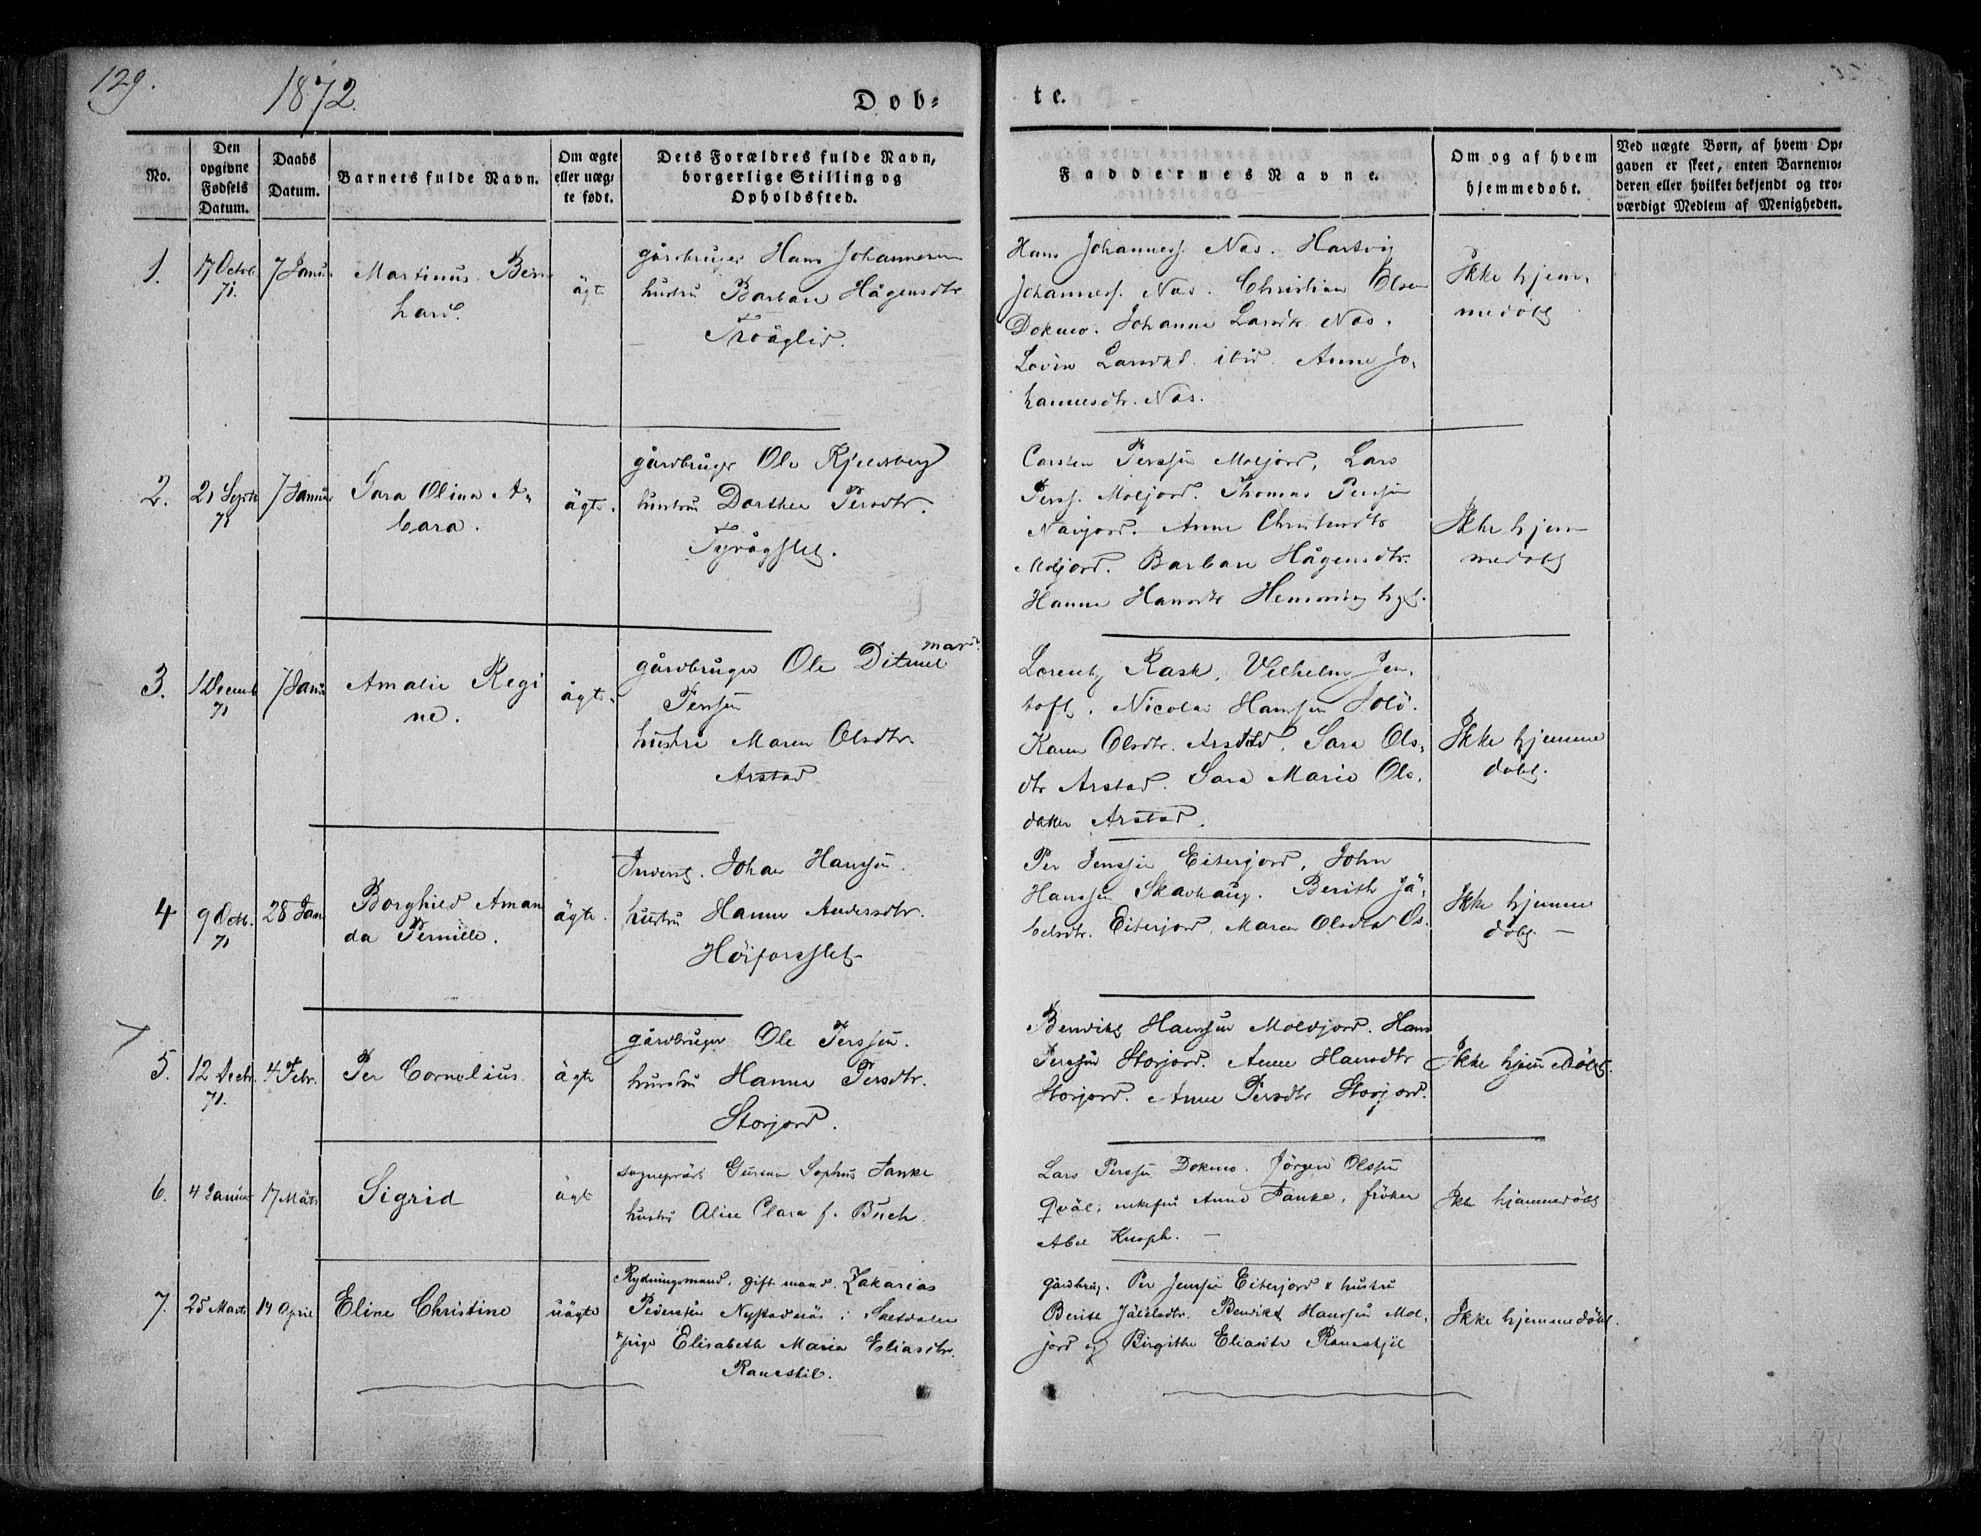 129.
1872.
Døb-
te.
No.
Den opgivne Fødsels Datum.
Daabs Datum.
Barnets fulde Navn.
Om ægte eller uægte født.
Dets Forældres fulde Navn, borgerlige Stilling og Opholdssted.
Faddernes Navne.
Om og af hvem hjemmedøbt.
Ved uægte Børn, af hvem Opgaven er skeet, enten Barnemoderen eller hvilket bekjendt og troværdigt Medlem af Menigheden.
1.
17 Octob. 71.
7 Januar
Martinus Bern
hard.
ägte
gårdbruger Hans Johannesen
hustru Barbara Hågensdtr
Troåglid.
Hans Johanness. Nås. Hartvig
Johanness. Nås. Christian Olsen
Dokmo. Johanna Larsdtr. Nås.
Larsdtr. ibid. Anne Jo-
hannesdtr. Nås.
Ikke hjem-
medøbt
2.
21 Septb 71
7 Januar
Sara Olina A-
bara.
ägte.
gårdbruger Ole Kjeldsberg
hustru Dorthea Persdtr.
Carsten Perssøn Moljord, Lars
Perss. Moljord. Thomas Perssøn
Anne Christensdtr
Moljord. Barbara Hågensdtr.
Hanna Hansdtr Hemming
Ikke hjem-
medøbt
3.
1 Decemb 71
7 Janu
Amalie Regi
ne.
ägte.
gårdbruger Ole Ditmar
Jenssøn
hustru Maren Olsdtr.
Arstad
Lorents Rask, Vilhelm Jen-
toft, Nicolai Hanssøn Solø.
Karen Olsdtr. Arstad. Sara Ols-
dtr Arstad. Sara Marie Ols-
datter Arstad.
Ikke hjemme
døbt.
4
9 Octb. 71
28 Jan
Borghild Aman
da Pernille.
ägte.
Inderst. Johan Hanssøn.
hustru Hanna Andersdtr.
Høiforsslet
Per Jenssøn Eiterjord, John
Hanssøn Skavhaug. Berith Ja-
kobsdtr. Eiterjord. Maren Olsdtr Os.
Ikke hjemme
døbt. —
5.
12 Decbr. 71.
4 Febr.
Per Cornelius
ägte
gårdbruger Ole Perssøn.
hustru Hanna Persdtr.
Storjord.
Bendikt Hanssøn Moldjord. Hans
Perssøn Storjord. Anne Hansdtr
Storjord. Anne Persdtr Storjord.
Ikke hjemmedøbt.
6.
4 Januar
17 Marts
Sigrid
ägt
sogneprest Gustav Sophus Fanke
hustru Alice Clara f. Buch.
Lars Perssøn Dokmo. Jørgen Olssøn
Qväl; enkefru Anna Fanke, frøken
Abel Knoph. —
Ikke hjemmedøbt
7.
25 Marts
14 April
Eline Christine
uägte
Rydningsmand, gift mand. Zakarias
Pederssøn Nystadnäs i Saltdalen
& pige Elisabeth Maria Eliasdtr.
Raneskil.
gårdbrug. Per Jenssøn Eiterjord & hustru
Berith Jakobsdtr. Bendikt Hanssøn Mol-
jord og Birgithe Eliasdtr Raneskjöl
Ikke hjemmedøbt.